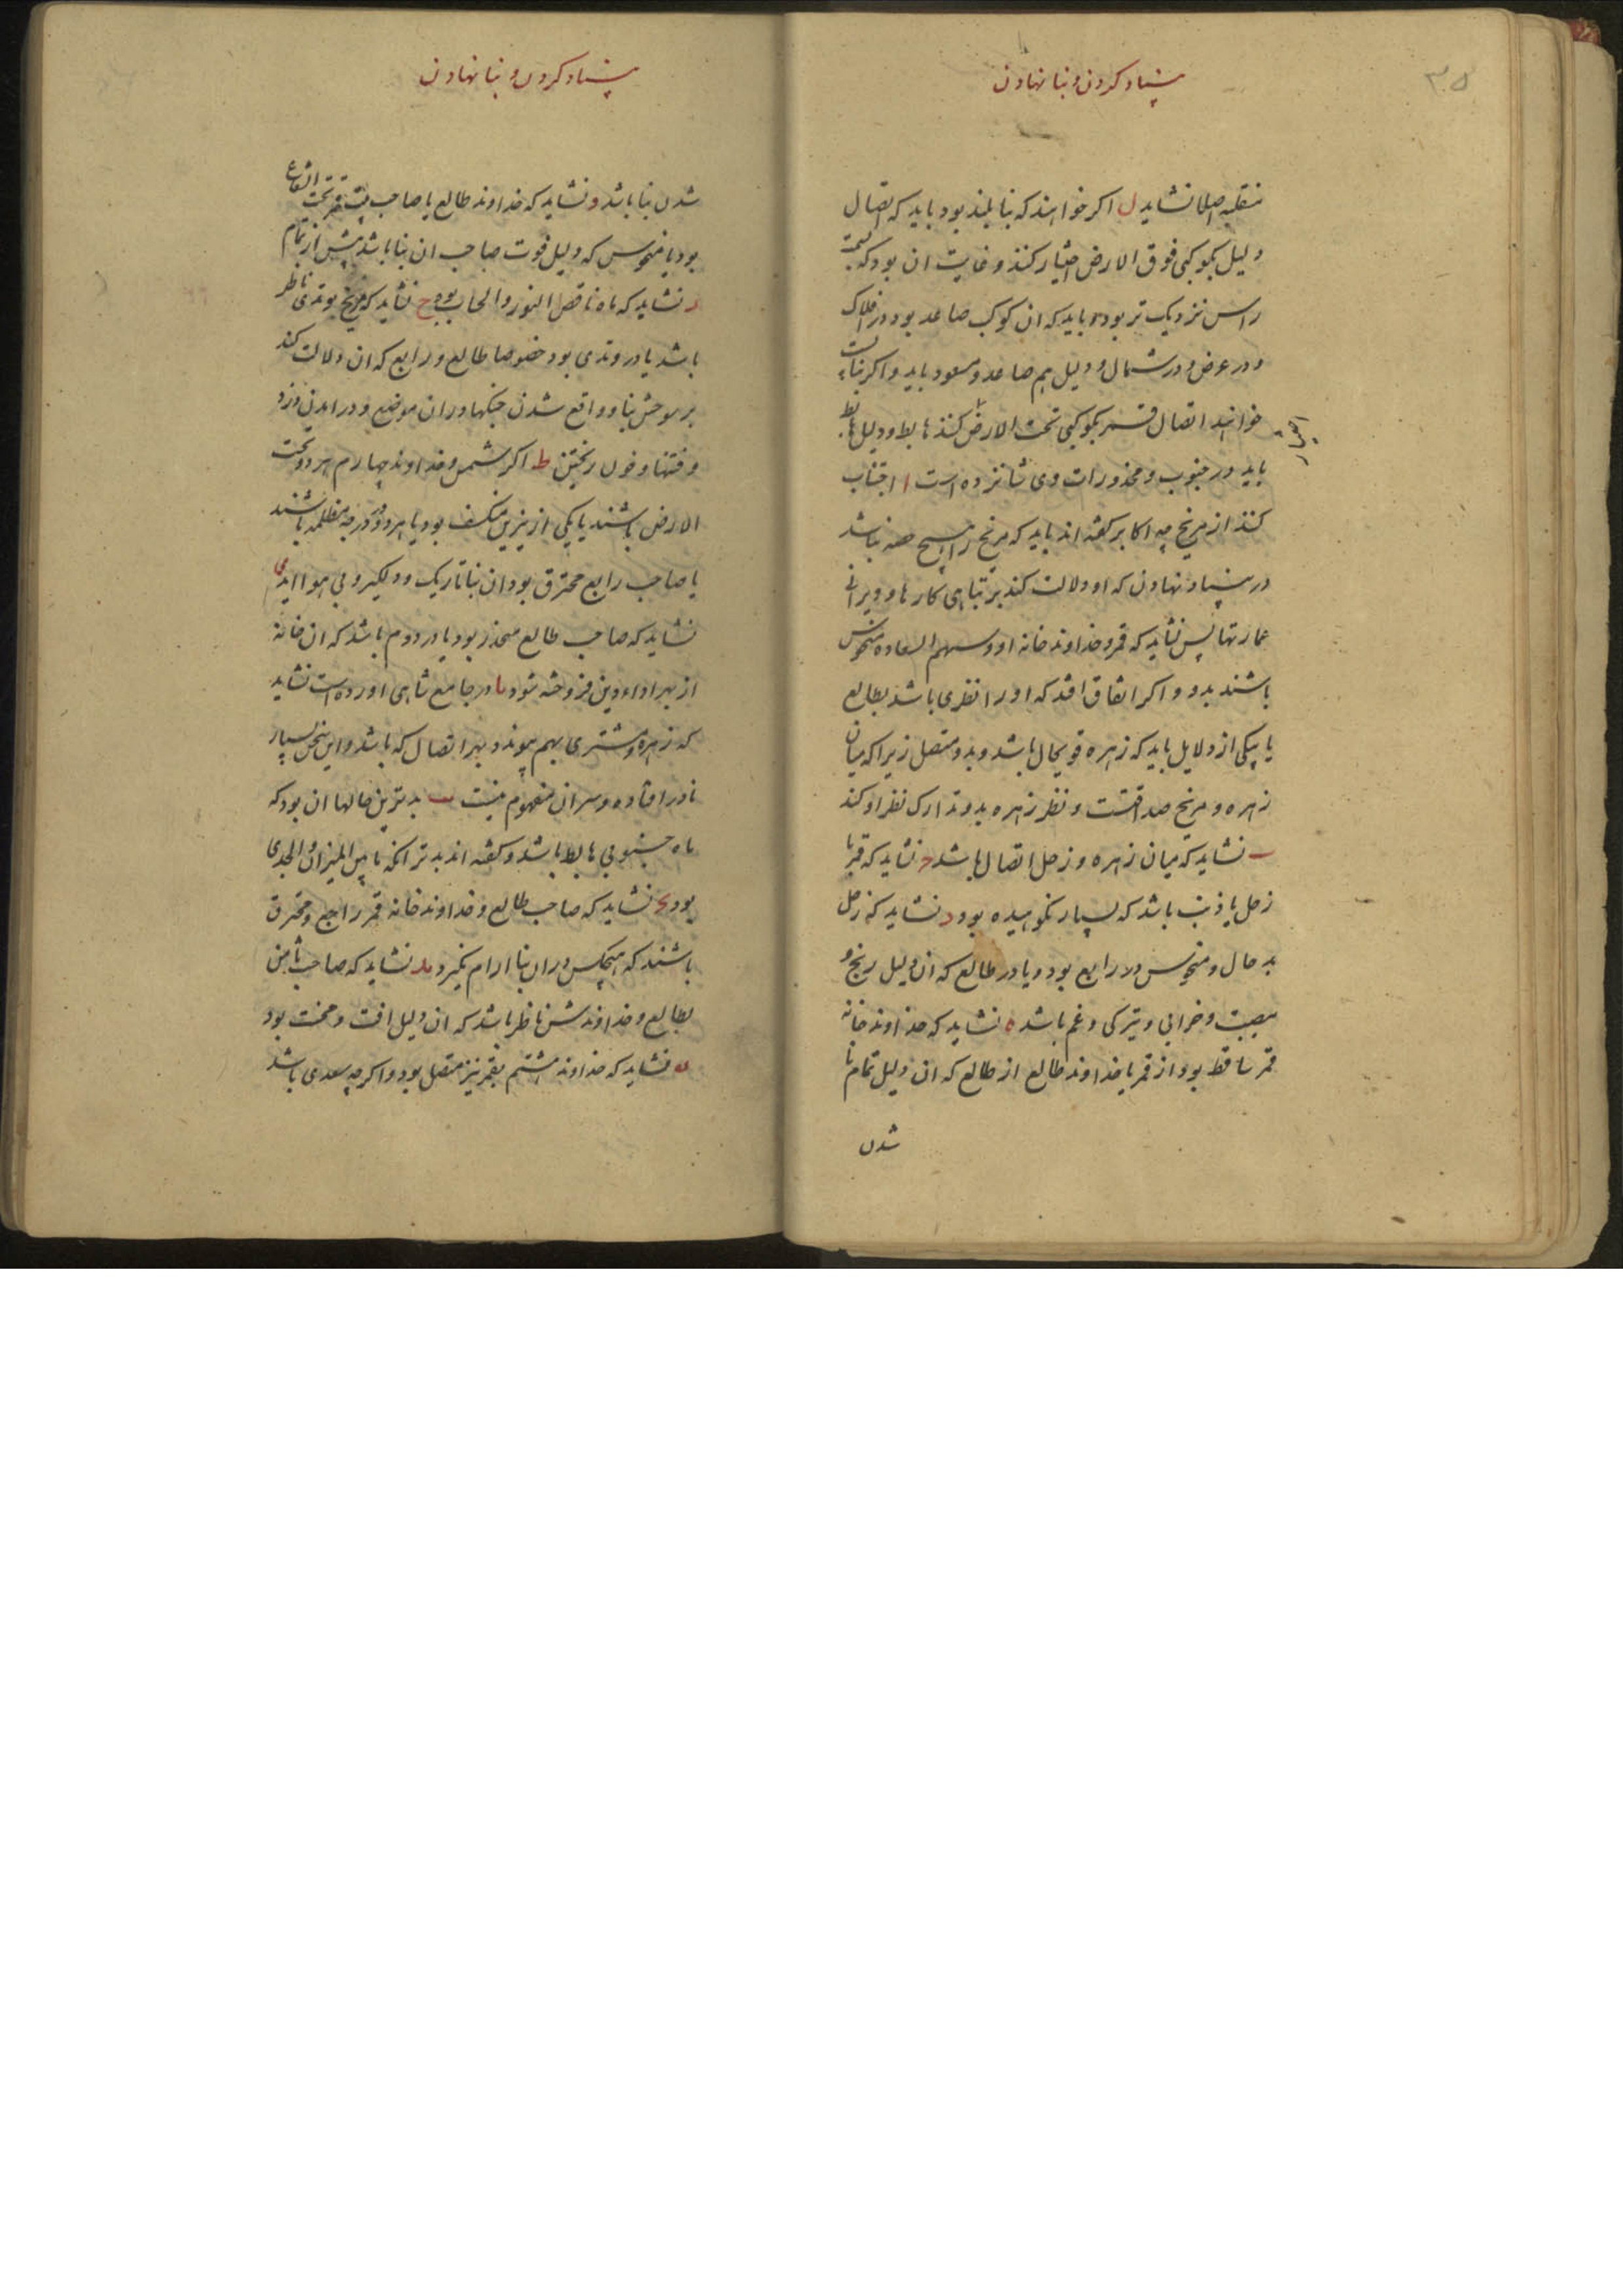 ۳۵
بنیاد کردن و بنا نهادن
منقلبه اصلا نشاید ل اکر خواهند که بنا بلند بود باید که اتصال
دلیل بکوکبی فوق الارض اختیار کنند و غایت ان بود که بسمت
راس نزدیک تر بود و باید که ان کوکب صاعد بود در افلاک
و در عرض و در شمال و دلیل هم صاعد و مسعود باید و اکر بنا پست
خواهند اتصال قمر بکوکبی تحت الارض کنند هابط و دلیل هابط
باید در جنوب و محذورات وی شانزده است ا اجتناب
اختیار
کنند از مریخ چه اکابر کفته اند باید که مریخ را هیچ حصه نباشد
در بنیاد نهادن که او دلالت کند بر تباهی کارها و ویرانی
عمارتها پس نشاید که قمر و خداوند خانه او و سهم السعاده منحوس
باشند بدو و اکر اتفاق افتد که او را نظری باشد بطالع
یا بیکی از دلایل باید که زهره قویحال باشد و بدو متصل زیرا که میان
زهره و مریخ صداقتست و نظر زهره بدو تدارک نظر او کند
ب نشاید که میان زهره و زحل اتصال باشد ج نشاید که قمر با
زحل یا ذنب باشد که بسیار نکوهیده بود د نشاید که زحل
بد حال و منحوس در رابع بود و یا در طالع که ان دلیل رنج و
مصیبت و خرابی و تیرکی و غم باشد ه نشاید که خداوند خانه
قمر ساقط بود از قمر یا خداوند طالع از طالع که ان دلیل تمام نا
شدن
بنیاد کردن و بنا نهادن
شدن بنا باشد و نشاید که خداوند طالع یا صاحب بیت قمر تحت الشعاع
بود یا منحوس که دلیل فوت صاحب ان بنا باشد پیش از تمام
ز نشاید که ماه ناقص النور والحساب بود ح نشاید که مریخ بوتدی ناظر
باشد یا در وتدی بود خصوصا طالع و رابع که ان دلالت کند
بر سوختن بنا و واقع شدن جنکها در ان موضع و در امدن دزد
و فتنها و خون ریختن ط اکر شمس و خداوند چهارم هر دو تحت
الارض باشند یا یکی از نیرین منکسف بود یا هر دو در درجه مظلمه باشند
یا صاحب رابع محترق بود ان بنا تاریک و دلکیر و بی هوا اید ی
نشاید که صاحب طالع منحدر بود یا در دوم باشد که ان خانه
از بهر اداء دین فروخته شود یا در جامع شاهی اورده است نشاید
که زهره و مشتری بهم پیوندد بهر اتصال که باشد و این سخن بسیار
نادر افتاده و سر ان مفهوم نیست یب بدترین حالها ان بود که
ماه جنوبی هابط باشد و کفته اند بدتر انکه ما بین المیزان و الجدی
بود یج نشاید که صاحب طالع و خداوند خانه قمر راجع و محترق
باشند که هیچکس در ان بنا ارام نکیرد ید نشاید که صاحب ثامن
بطالع و خداوندش ناظر باشد که ان دلیل افت و محنت بود
یه نشاید که خداوند هشتم بقمر نیز متصل بود و اکر چه سعدی باشد